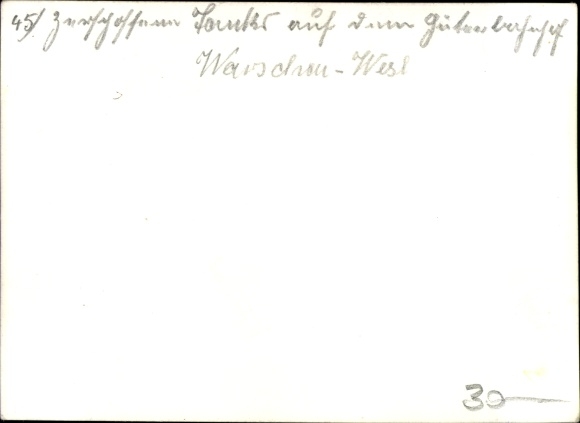 45/ Zerschossene Tanks auf dem Güterbahnhof
Warschau-West
30—